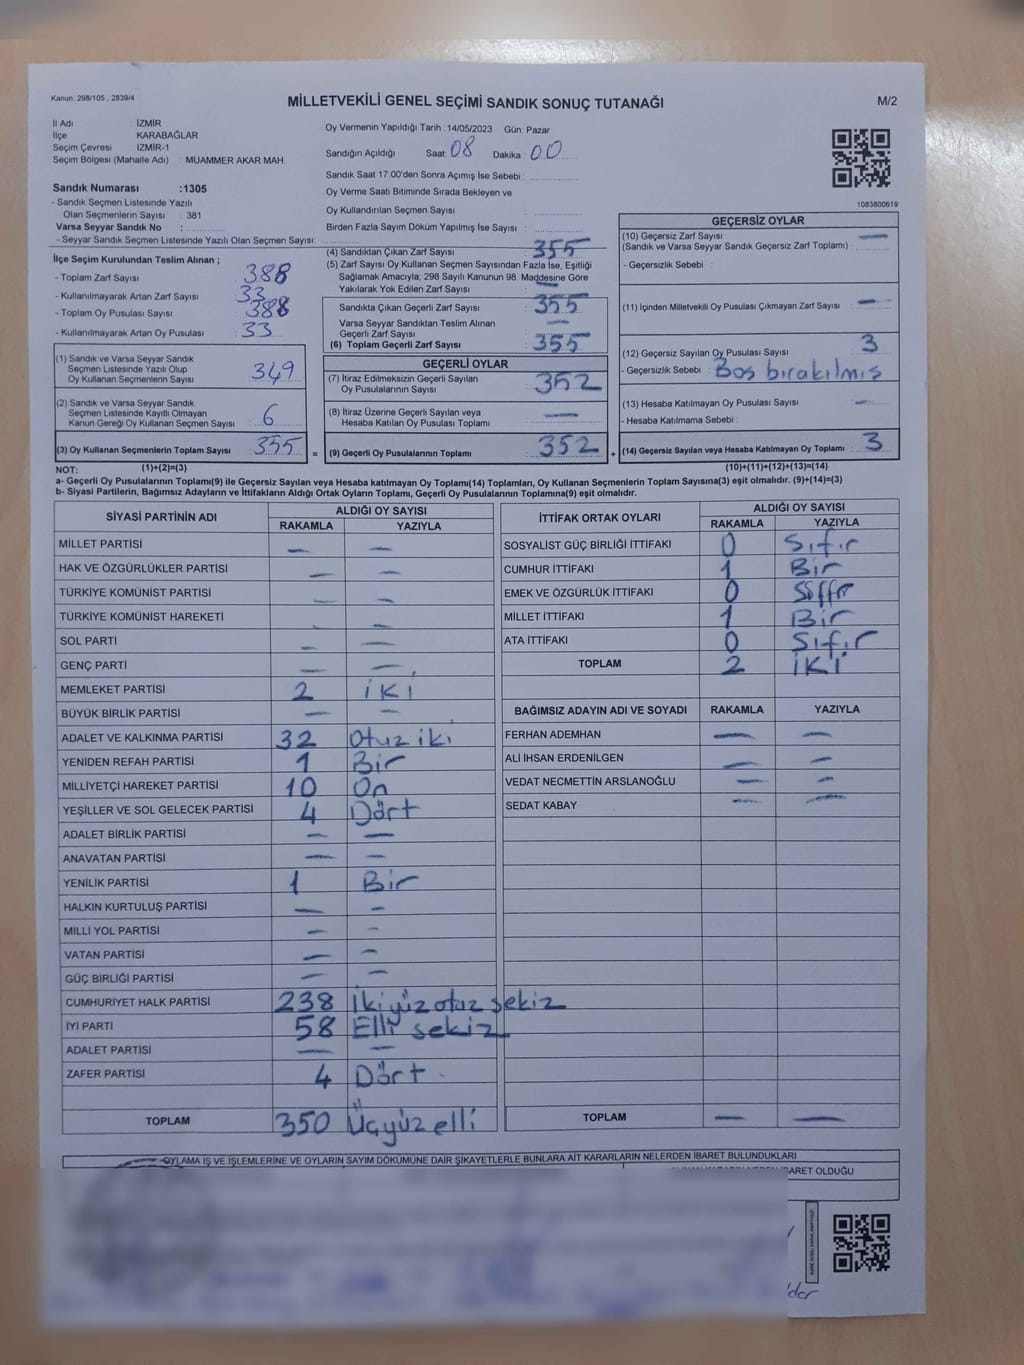 Kanun: 298/105 , 2839/4
MİLLETVEKİLİ GENEL SEÇİMİ SANDIK SONUÇ TUTANAĞI
M/2
İl Adı : İZMİR
İlçe : KARABAĞLAR
Seçim Çevresi : İZMİR-1
Seçim Bölgesi (Mahalle Adı) : MUAMMER AKAR MAH.
Sandık Numarası :1305
- Sandık Seçmen Listesinde Yazılı
Olan Seçmenlerin Sayısı : 381
Varsa Seyyar Sandık No :
- Seyyar Sandık Seçmen Listesinde Yazılı Olan Seçmen Sayısı:
Oy Vermenin Yapıldığı Tarih :14/05/2023 Gün: Pazar
Sandığın Açıldığı Saat: 08 Dakika : 00
Sandık Saat 17:00'den Sonra Açımış İse Sebebi :
Oy Verme Saati Bitiminde Sırada Bekleyen ve
Oy Kullandırılan Seçmen Sayısı :
Birden Fazla Sayım Döküm Yapılmış İse Sayısı :
1083800619
İlçe Seçim Kurulundan Teslim Alınan ;
- Toplam Zarf Sayısı : 388
- Kullanılmayarak Artan Zarf Sayısı : 33
- Toplam Oy Pusulası Sayısı : 388
- Kullanılmayarak Artan Oy Pusulası : 33
(1) Sandık ve Varsa Seyyar Sandık
Seçmen Listesinde Yazılı Olup
Oy Kullanan Seçmenlerin Sayısı : 349
(2) Sandık ve Varsa Seyyar Sandık
Seçmen Listesinde Kayıtlı Olmayan
Kanun Gereği Oy Kullanan Seçmen Sayısı : 6
(3) Oy Kullanan Seçmenlerin Toplam Sayısı : 355
(4) Sandıktan Çıkan Zarf Sayısı : 355
(5) Zarf Sayısı Oy Kullanan Seçmen Sayısından Fazla İse, Eşitliği
Sağlamak Amacıyla; 298 Sayılı Kanunun 98. Maddesine Göre
Yakılarak Yok Edilen Zarf Sayısı : —
Sandıkta Çıkan Geçerli Zarf Sayısı : 355
Varsa Seyyar Sandıktan Teslim Alınan
Geçerli Zarf Sayısı : —
(6) Toplam Geçerli Zarf Sayısı : 355
GEÇERLİ OYLAR
(7) İtiraz Edilmeksizin Geçerli Sayılan
Oy Pusulalarının Sayısı : 352
(8) İtiraz Üzerine Geçerli Sayılan veya
Hesaba Katılan Oy Pusulası Toplamı : —
= (9) Geçerli Oy Pusulalarının Toplamı : 352 +
GEÇERSİZ OYLAR
(10) Geçersiz Zarf Sayısı : —
(Sandık ve Varsa Seyyar Sandık Geçersiz Zarf Toplamı)
- Geçersizlik Sebebi :
(11) İçinden Milletvekili Oy Pusulası Çıkmayan Zarf Sayısı : —
(12) Geçersiz Sayılan Oy Pusulası Sayısı : 3
- Geçersizlik Sebebi : Boş bırakılmış
(13) Hesaba Katılmayan Oy Pusulası Sayısı : —
- Hesaba Katılmama Sebebi :
(14) Geçersiz Sayılan veya Hesaba Katılmayan Oy Toplamı : 3
NOT: (1)+(2)=(3)
(10)+(11)+(12)+(13)=(14)
a- Geçerli Oy Pusulalarının Toplamı(9) ile Geçersiz Sayılan veya Hesaba katılmayan Oy Toplamı(14) Toplamları, Oy Kullanan Seçmenlerin Toplam Sayısına(3) eşit olmalıdır. (9)+(14)=(3)
b- Siyasi Partilerin, Bağımsız Adayların ve İttifakların Aldığı Ortak Oyların Toplamı, Geçerli Oy Pusulalarının Toplamına(9) eşit olmalıdır.
SİYASİ PARTİNİN ADI
ALDIĞI OY SAYISI
RAKAMLA YAZIYLA
MİLLET PARTİSİ — —
HAK VE ÖZGÜRLÜKLER PARTİSİ — —
TÜRKİYE KOMÜNİST PARTİSİ — —
TÜRKİYE KOMÜNİST HAREKETİ — —
SOL PARTİ — —
GENÇ PARTİ — —
MEMLEKET PARTİSİ 2 İKİ
BÜYÜK BİRLİK PARTİSİ — —
ADALET VE KALKINMA PARTİSİ 32 Otuz iki
YENİDEN REFAH PARTİSİ 1 Bir
MİLLİYETÇİ HAREKET PARTİSİ 10 On
YEŞİLLER VE SOL GELECEK PARTİSİ 4 Dört
ADALET BİRLİK PARTİSİ — —
ANAVATAN PARTİSİ — —
YENİLİK PARTİSİ 1 Bir
HALKIN KURTULUŞ PARTİSİ — —
MİLLİ YOL PARTİSİ — —
VATAN PARTİSİ — —
GÜÇ BİRLİĞİ PARTİSİ — —
CUMHURİYET HALK PARTİSİ 238 İkiyüz otuz sekiz
İYİ PARTİ 58 Elli sekiz
ADALET PARTİSİ — —
ZAFER PARTİSİ 4 Dört
TOPLAM 350 Üçyüz elli
İTTİFAK ORTAK OYLARI
ALDIĞI OY SAYISI
RAKAMLA YAZIYLA
SOSYALİST GÜÇ BİRLİĞİ İTTİFAKI 0 Sıfır
CUMHUR İTTİFAKI 1 Bir
EMEK VE ÖZGÜRLÜK İTTİFAKI 0
MİLLET İTTİFAKI 1 Bir
ATA İTTİFAKI 0 Sıfır
TOPLAM 2 İKİ
BAĞIMSIZ ADAYIN ADI VE SOYADI RAKAMLA YAZIYLA
FERHAN ADEMHAN — —
ALİ İHSAN ERDENİLGEN — —
VEDAT NECMETTİN ARSLANOĞLU — —
SEDAT KABAY — —
TOPLAM — —
OYLAMA İŞ VE İŞLEMLERİNE VE OYLARIN SAYIM DÖKÜMÜNE DAİR ŞİKAYETLERLE BUNLARA AİT KARARLARIN NELERDEN İBARET BULUNDUKLARI
İBARET OLDUĞU